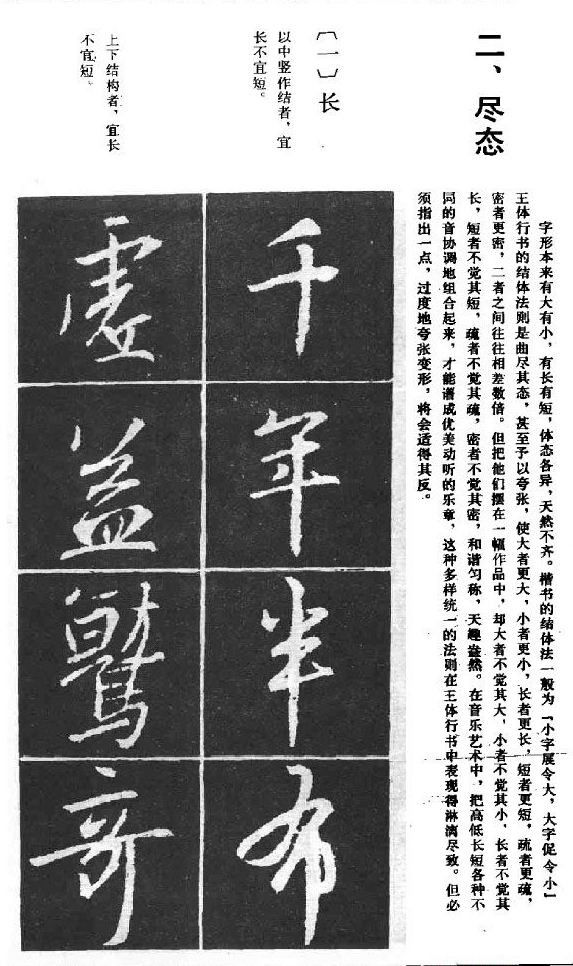 二、尽态
字形本来有大有小，有长有短，体态各异，天然不齐。楷书的结体法一般为「小字展令大，大字促令小」
王体行书的结体法则是曲尽其态，甚至予以夸张，使大者更大，小者更小，长者更长，短者更短，疏者更疏，
密者更密，二者之间往往相差数倍。但把他们摆在一幅作品中，却大者不觉其大，小者不觉其小，长者不觉其
长，短者不觉其短，疏者不觉其疏，密者不觉其密，和谐匀称，天趣盎然。在音乐艺术中，把高低长短各种不
同的音协调地组合起来，才能谱成优美动听的乐章，这种多样统一的法则在王体行书中表现得淋漓尽致。但必
须指出一点，过度地夸张变形，将会适得其反。
〔一〕长
以中竖作结者，宜
长不宜短。
千年半布
上下结构者，宜长
不宜短。
虚益驚奇